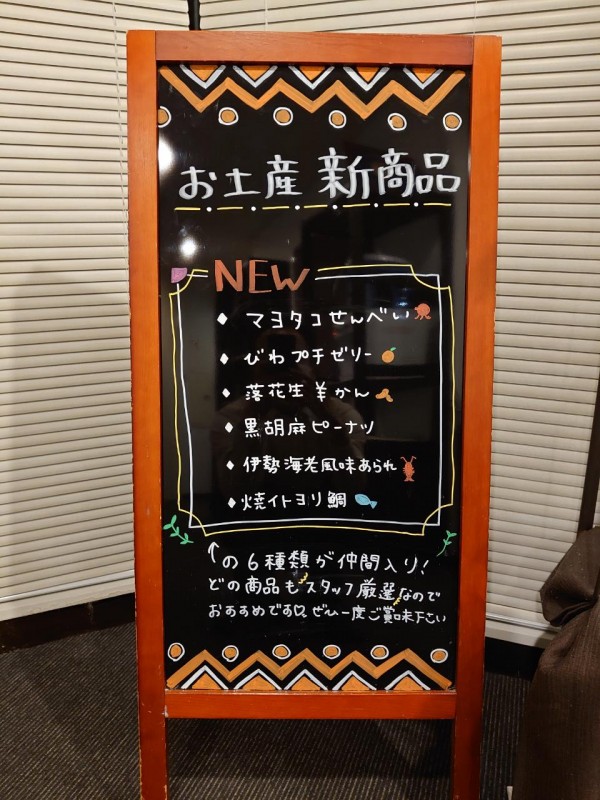 お土産 新商品
NEW
◆ マヨタコせんべい
◆ びわプチゼリー
◆ 落花生羊かん
◆ 黒胡麻ピーナツ
◆ 伊勢海老風味あられ
◆ 焼イトヨリ鯛
↑の6種類が仲間入り!
どの商品もスタッフ厳選なので
おすすめです!! ぜひ一度ご賞味下さい